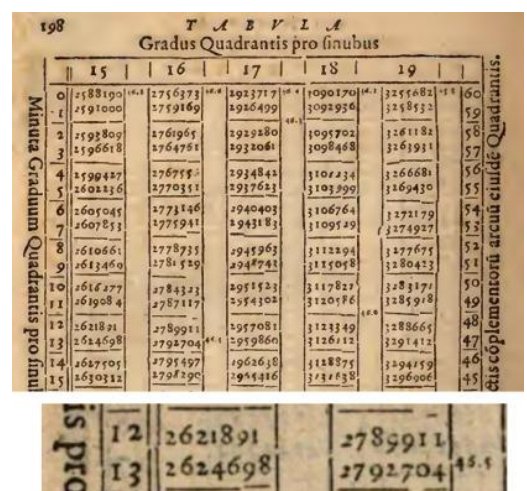 198 TABVLA
Gradus Quadrantis pro sinubus
15 16 17 18 19
0 2588190 2756373 2923717 3090170 46.1 3255682 45.8 60
1 2591000 2759169 2926499 3092936 3258532 59
2 2593809 2761965 2929280 3095702 3261182 58
3 2596618 2764761 2932061 3098468 3263931 57
4 2599427 2934842 3101234 3266681 56
5 2602236 2770351 2937623 3103999 3269430 55
6 2605045 2773146 2940403 3106764 3272179 54
7 2607853 2775941 2943183 3109529 3274927 53
8 2610661 2778735 2945963 3112294 3277675 52
9 2613469 2781529 2948742 3115058 3280423 51
10 2616277 2784323 2951523 3117821 3283171 50
11 2619084 2787117 2954302 3120586 3285918 49
12 2621891 2789911 2957081 3123349 3288665 48
13 2624698 2792704 46.5 2959860 3126112 3291412 47
14 2627505 2795497 2962638 3128875 3294159 46
15 2630312 2798290 2965416 3131638 3296906 45
Minuta Graduum Quadrantis pro
cóplementorũ arcuũ eiusdẽ Quadrantis.
tis pro
12 2621891 2789911
13 2624698 2792704 46.5